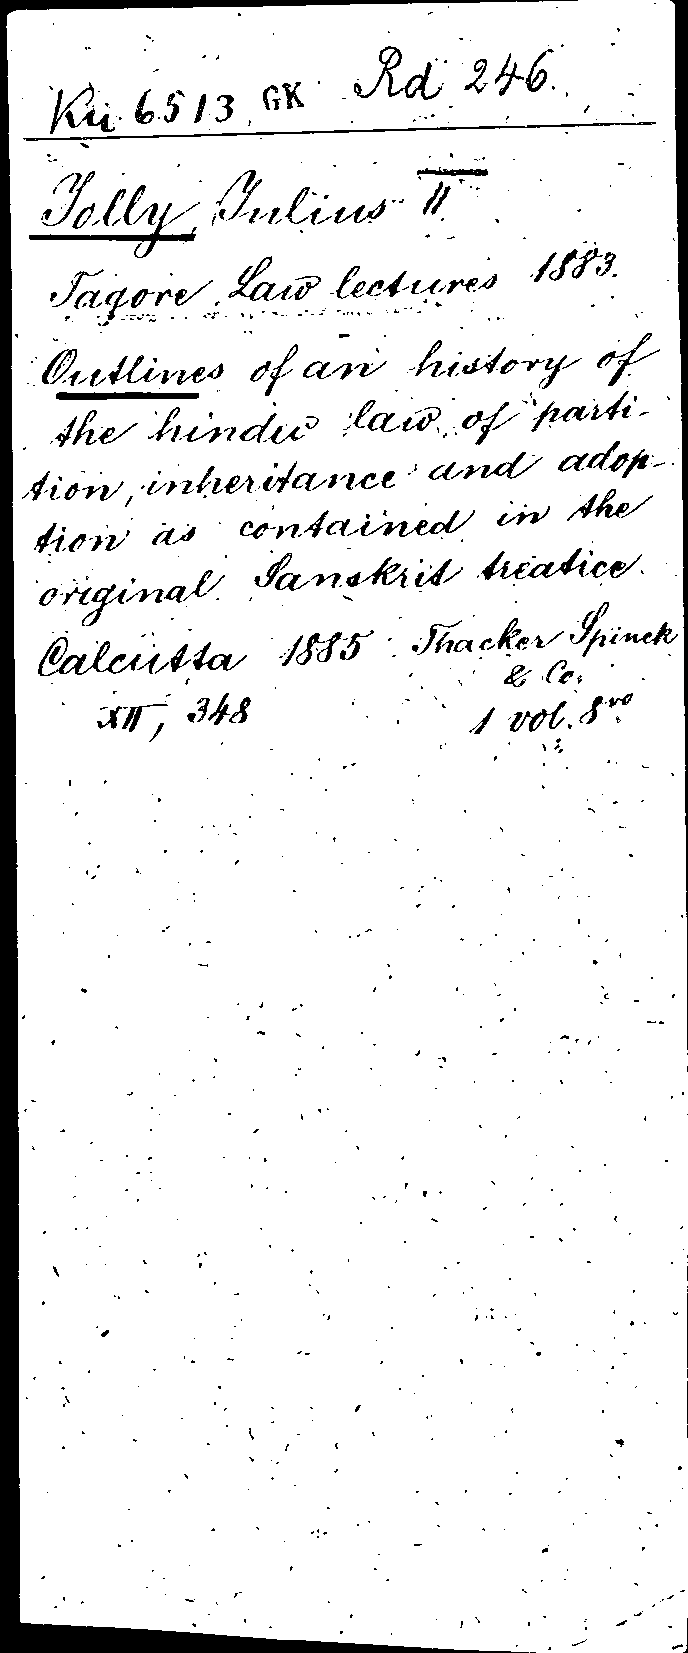 Kü 6513 GK Rd 246.
Jolly, Julius II
Tagore Law lectures 1883.
Outlines of an history of
the hindu law of parti-
tion, inheritance and adop-
tion as contained in the
original Sanskrit treatice.
Calcutta 1885 Thacker Spinck
& Co.
XII, 348 1 vol. 8vo